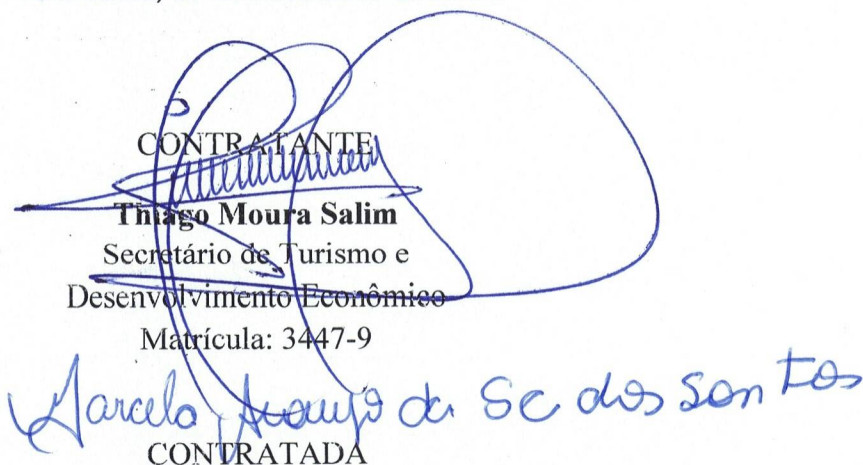 CONTRATANTE
Thiago Moura Salim
Secretário de Turismo e
Desenvolvimento Econômico
Matrícula: 3447-9
Marcelo Araujo de Sc dos Santos
CONTRATADA